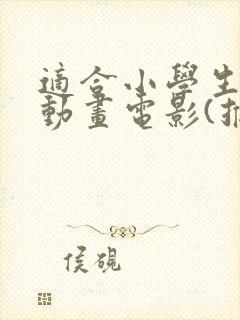 適合小學生
動畫電影(推
侯硯